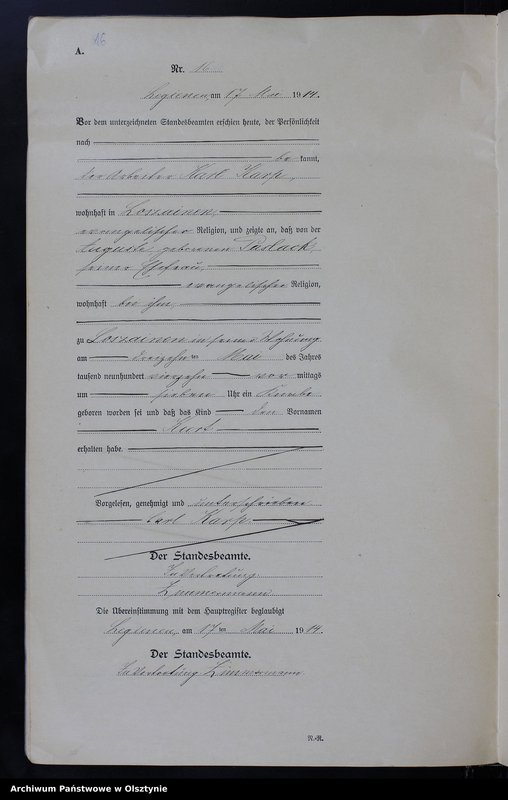 A.
16
Nr. 16
Legienen, am 17 Mai 1914.
Vor dem unterzeichneten Standesbeamten erschien heute, der Persönlichkeit
nach
be kannt,
der Arbeiter Karl Karp,
wohnhaft in Lossainen,
evangelischer Religion, und zeigte an, daß von der
Auguste geborenen Paslack,
seiner Ehefrau,
evangelischer Religion,
wohnhaft bei ihm,
zu Lossainen in seiner Wohnung
am dreizehnten Mai des Jahres
tausend neunhundert vierzehn vor mittags
um sieben Uhr ein Knabe
geboren worden sei und daß das Kind den Vornamen
Kurt
erhalten habe.
Vorgelesen, genehmigt und unterschrieben
Karl Karp
Der Standesbeamte.
In Vertretung
Zimmermann
Die Übereinstimmung mit dem Hauptregister beglaubigt
Legienen, am 17 ten Mai 1914.
Der Standesbeamte.
In Vertretung Zimmermann
N.-R.
Archiwum Państwowe w Olsztynie